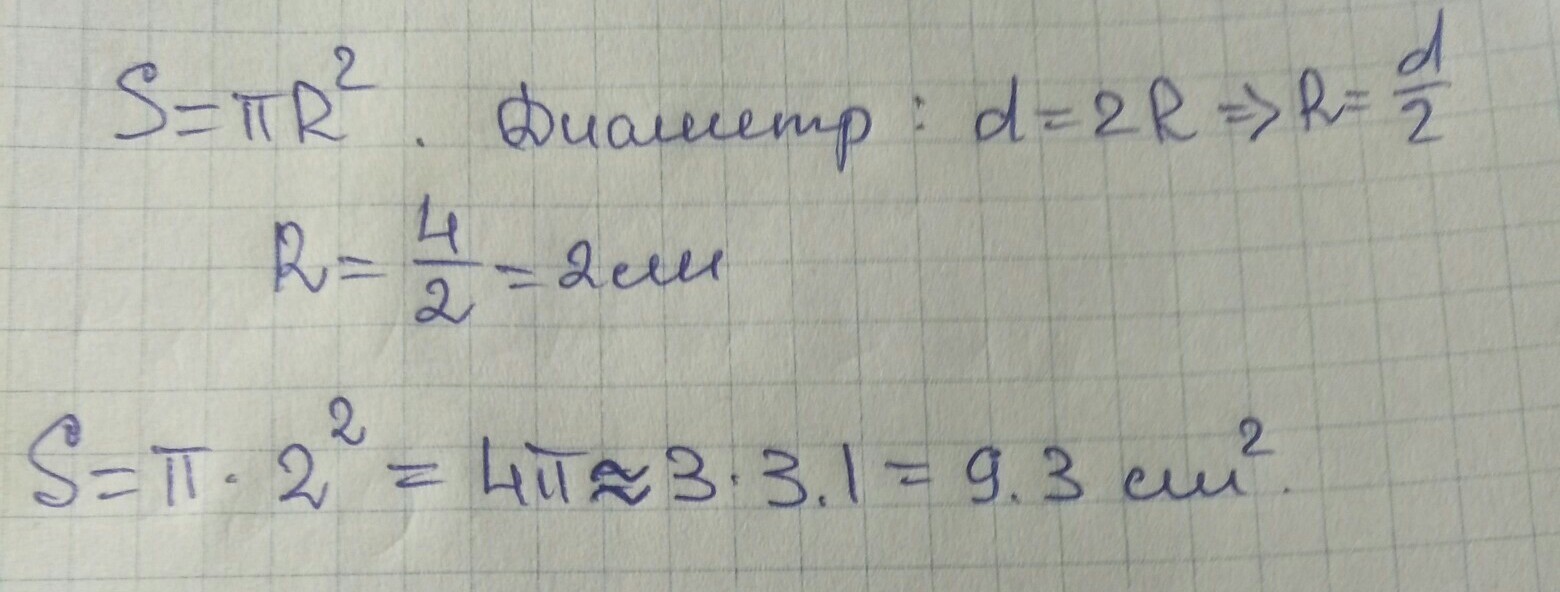 S = πR². Диаметр: d = 2R => R = d/2
R = 4/2 = 2см
S = π · 2² = 4π ≈ 3 · 3.1 = 9.3 см².